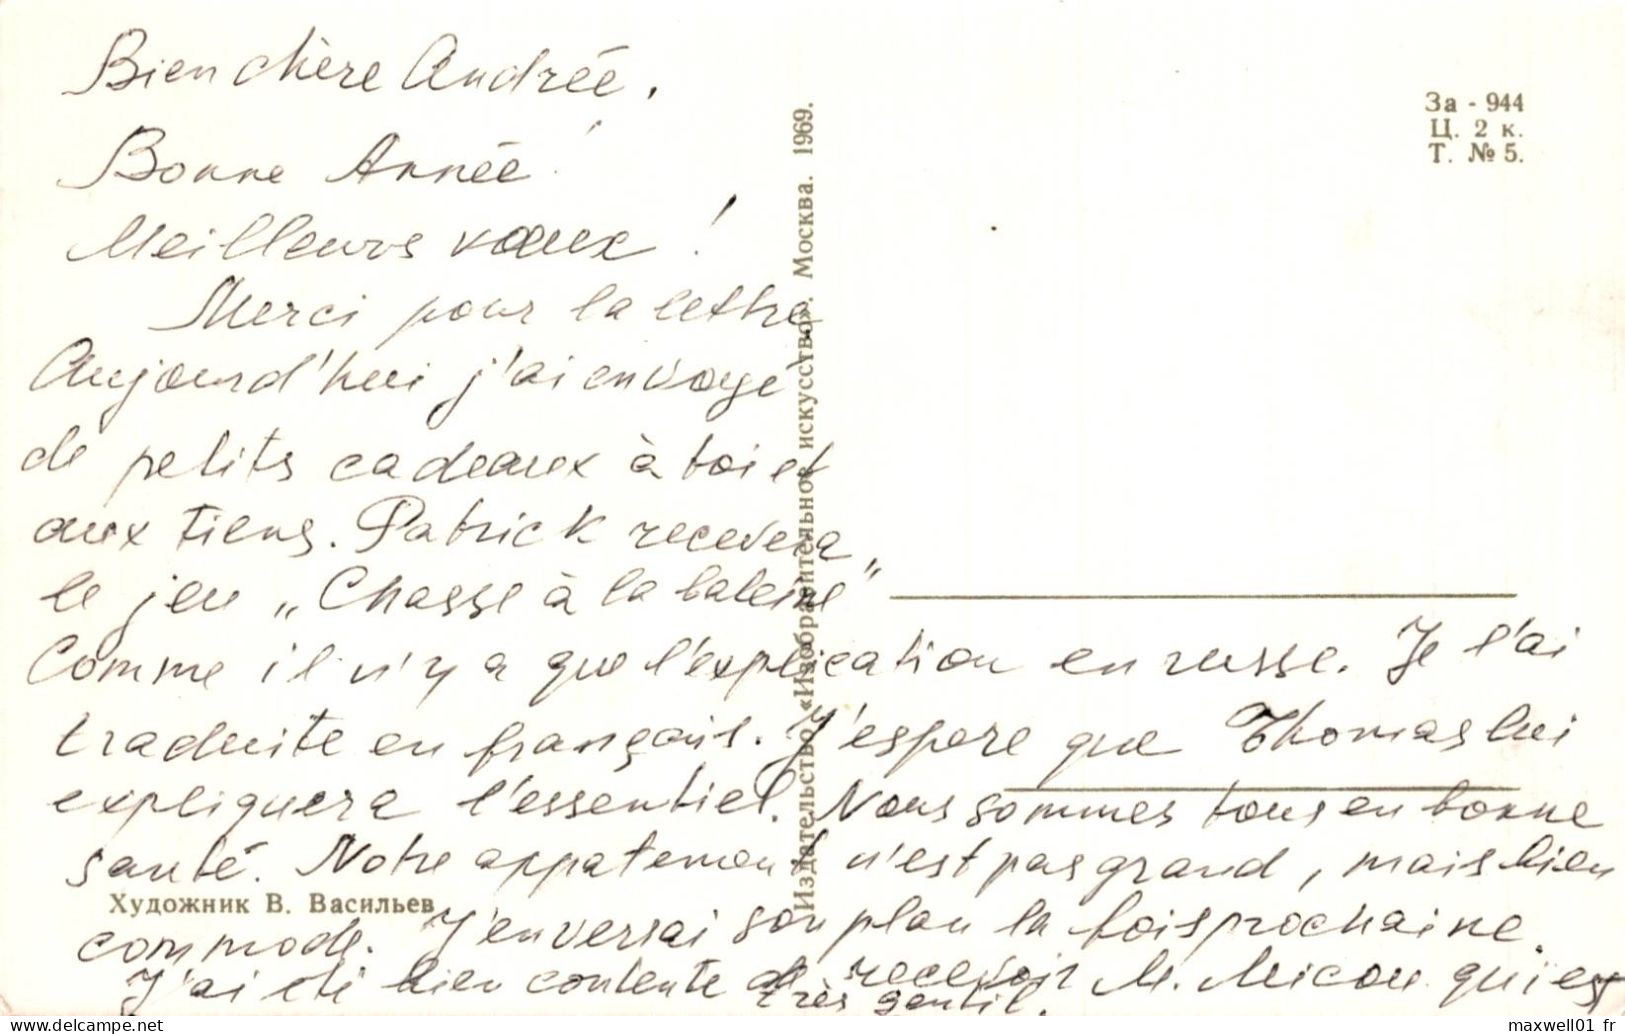 Bien chère Andrée,
Bonne Année!
Meilleurs vœux!
Merci pour la lettre
Aujourd'hui j'ai envoyé
de petits cadeaux à toi et
aux tiens. Patrick recevera
le jeu „Chasse à la baleine"
Comme il n'y a que l'explication en russe. Je l'ai
traduite en français. J'espère que Thomas lui
expliquera l'essentiel. Nous sommes tous en bonne
santé. Notre appatement n'est pas grand, mais bien
commode. J'enverrai son plan la fois prochaine.
J'ai été bien contente de recevoir M. Micou qui est
très gentil.
Художник В. Васильев
Издательство «Изобразительное искусство». Москва. 1969.
За - 944
Ц. 2 к.
Т. № 5.
maxwell01_fr